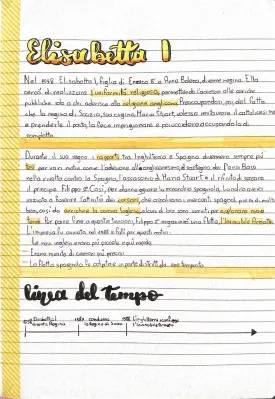 Elisabetta I
Nel 1558 Elisabetta I, figlia di Enrico 8° e Anna Bolena, divenne regina. Ella
cercò di realizzare l'uniformità religiosa, permettendo l'accesso alle cariche
pubbliche solo a chi aderiva alla religione anglicana. Preoccupandosi poi del fatto
che la regina di Scozia, sua cugina Maria Stuart, volesse restaurare il cattolicesimo
e prenderle il posto, la fece imprigionare e poi uccidere accusandola di
complotto.
Durante il suo regno i rapporti tra Inghilterra e Spagna divennero sempre più
tesi per vari motivi come: l'adesione all'anglicanesimo, il sostegno dei Paesi Bassi
nella rivolta contro la Spagna, l'assassinio di Maria Stuart e il rifiuto di sposare
il principe Filippo 2°. Così, per danneggiare la monarchia spagnola, Londra aveva
iniziato a favorire l'attività dei corsari, che assalivano i mercanti spagnoli,
così da arricchire la corona inglese, alcuni di loro sono servati per esplorare nuove
terre. Per porre fine a queste tensioni, Filippo 2° organizzò una flotta, l'Invincibile Armata.
L'impresa fu avviata nel 1588 e fallì per questi motivi:
Le navi inglesi erano più piccole e più rapide
Erano munite di cannoni più precisi
La flotta spagnola fu colpita e in parte distrutta da una tempesta
linea del tempo
1558 Elisabetta I diventa Regina
1587 condanna la regina di Scozia
1588 Inghilterra sconfigge l'Invincibile Armata